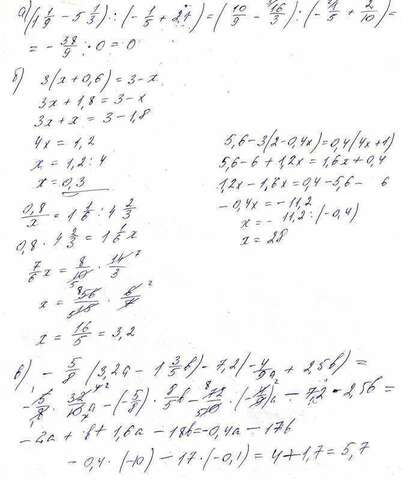 а) (1 1/9 - 5 1/3) : (- 1/5 + 2/10) = (10/9 - 16/3) : (- 1/5 + 2/10) =
= - 38/9 : 0 = 0
б) 3(x + 0,6) = 3 - x
3x + 1,8 = 3 - x
3x + x = 3 - 1,8
4x = 1,2
x = 1,2 : 4
x = 0,3
5,6 - 3(2 - 0,4x) = 0,4(4x + 1)
5,6 - 6 + 1,2x = 1,6x + 0,4
1,2x - 1,6x = 0,4 - 5,6 - 6
- 0,4x = - 11,2
x = - 11,2 : (-0,4)
x = 28
0,8/x = 1 1/6 : 4 2/3
0,8 · 4 2/3 = 1 1/6 x
7/6 x = 8/10 · 14/3
x = 56/15 · 6/7
x = 16/5 = 3,2
в) - 5/8 (3,2a - 1 3/5 b) - 7,2(- 4/9 a + 2,5b) =
- 5/8 · 32/10 a - (- 5/8) · 8/5 b - 72/10 · (- a) - 7,2 · 2,5b =
- 2a + b + 1,6a - 18b = -0,4a - 17b
- 0,4 · (-10) - 17 · (-0,1) = 4 + 1,7 = 5,7